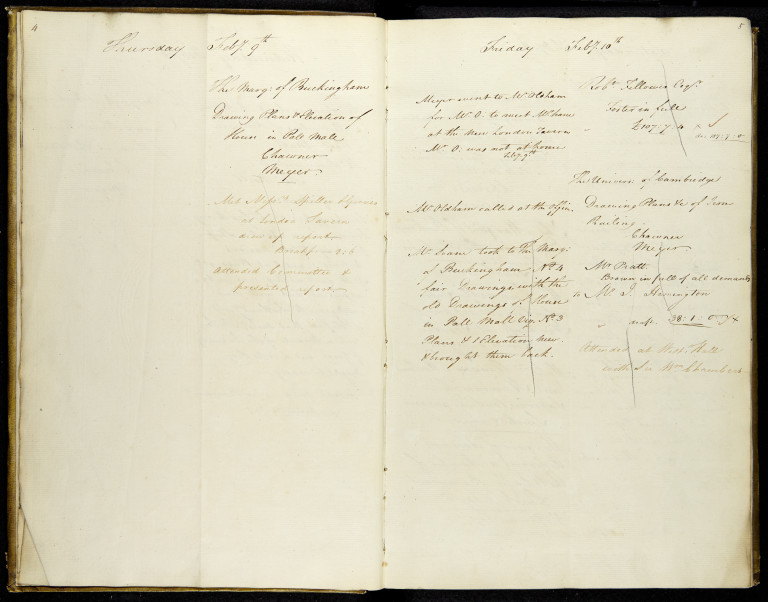 4
Thursday Feby. 9th
The Marqs. of Buckingham
Drawing Plans & Elevation of
House in Pall Mall
Chawner
Meyer
Met Messrs. Spiller &
at London Tavern
drew up report
Breakfast
Attended Committee &
presented report
5
Friday Feby. 10th
Meyer went to Mr. Oldham
for Mr. O: to meet Mr.
at the New London Tavern
Mr. O: was not at home
Feby. 9th
Mr. Oldham called at the Office
Mr. Soane took to the Marqs.
of Buckingham No. 4
fair Drawings with the
old Drawings of House
in Pall Mall Viz. No. 3
Plans & 1 Elevation new
& brought them back.
Robt. Fellowes Esqr.
Foster in full
£107.7.
The Univers. of Cambridge
Drawing Plans &c of Iron
Railing.
Chawner
Meyer
Mr. Pratt.
Brown in full of all demands
Mr. J. Harrington
38.1.0
Attended at West. Hall
with Sir Wm. Chambers